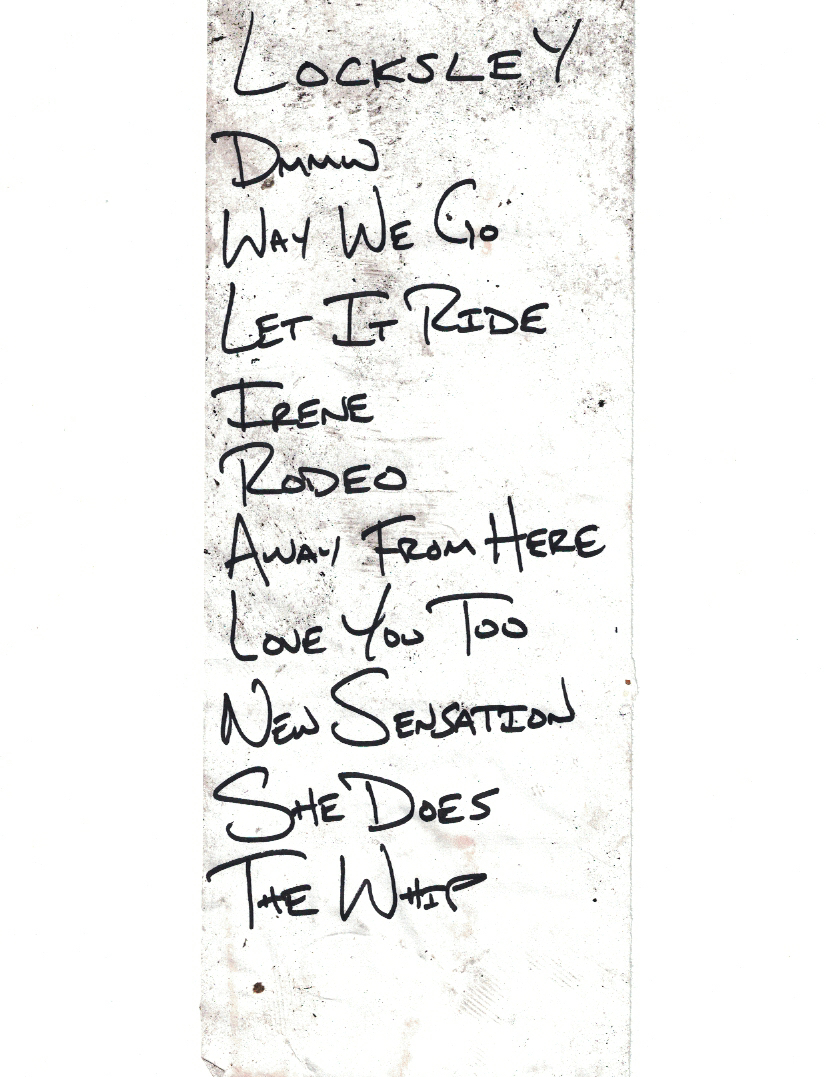 LOCKSLEY
DMMW
WAY WE GO
LET IT RIDE
IRENE
RODEO
AWAY FROM HERE
LOVE YOU TOO
NEW SENSATION
SHE DOES
THE WHIP